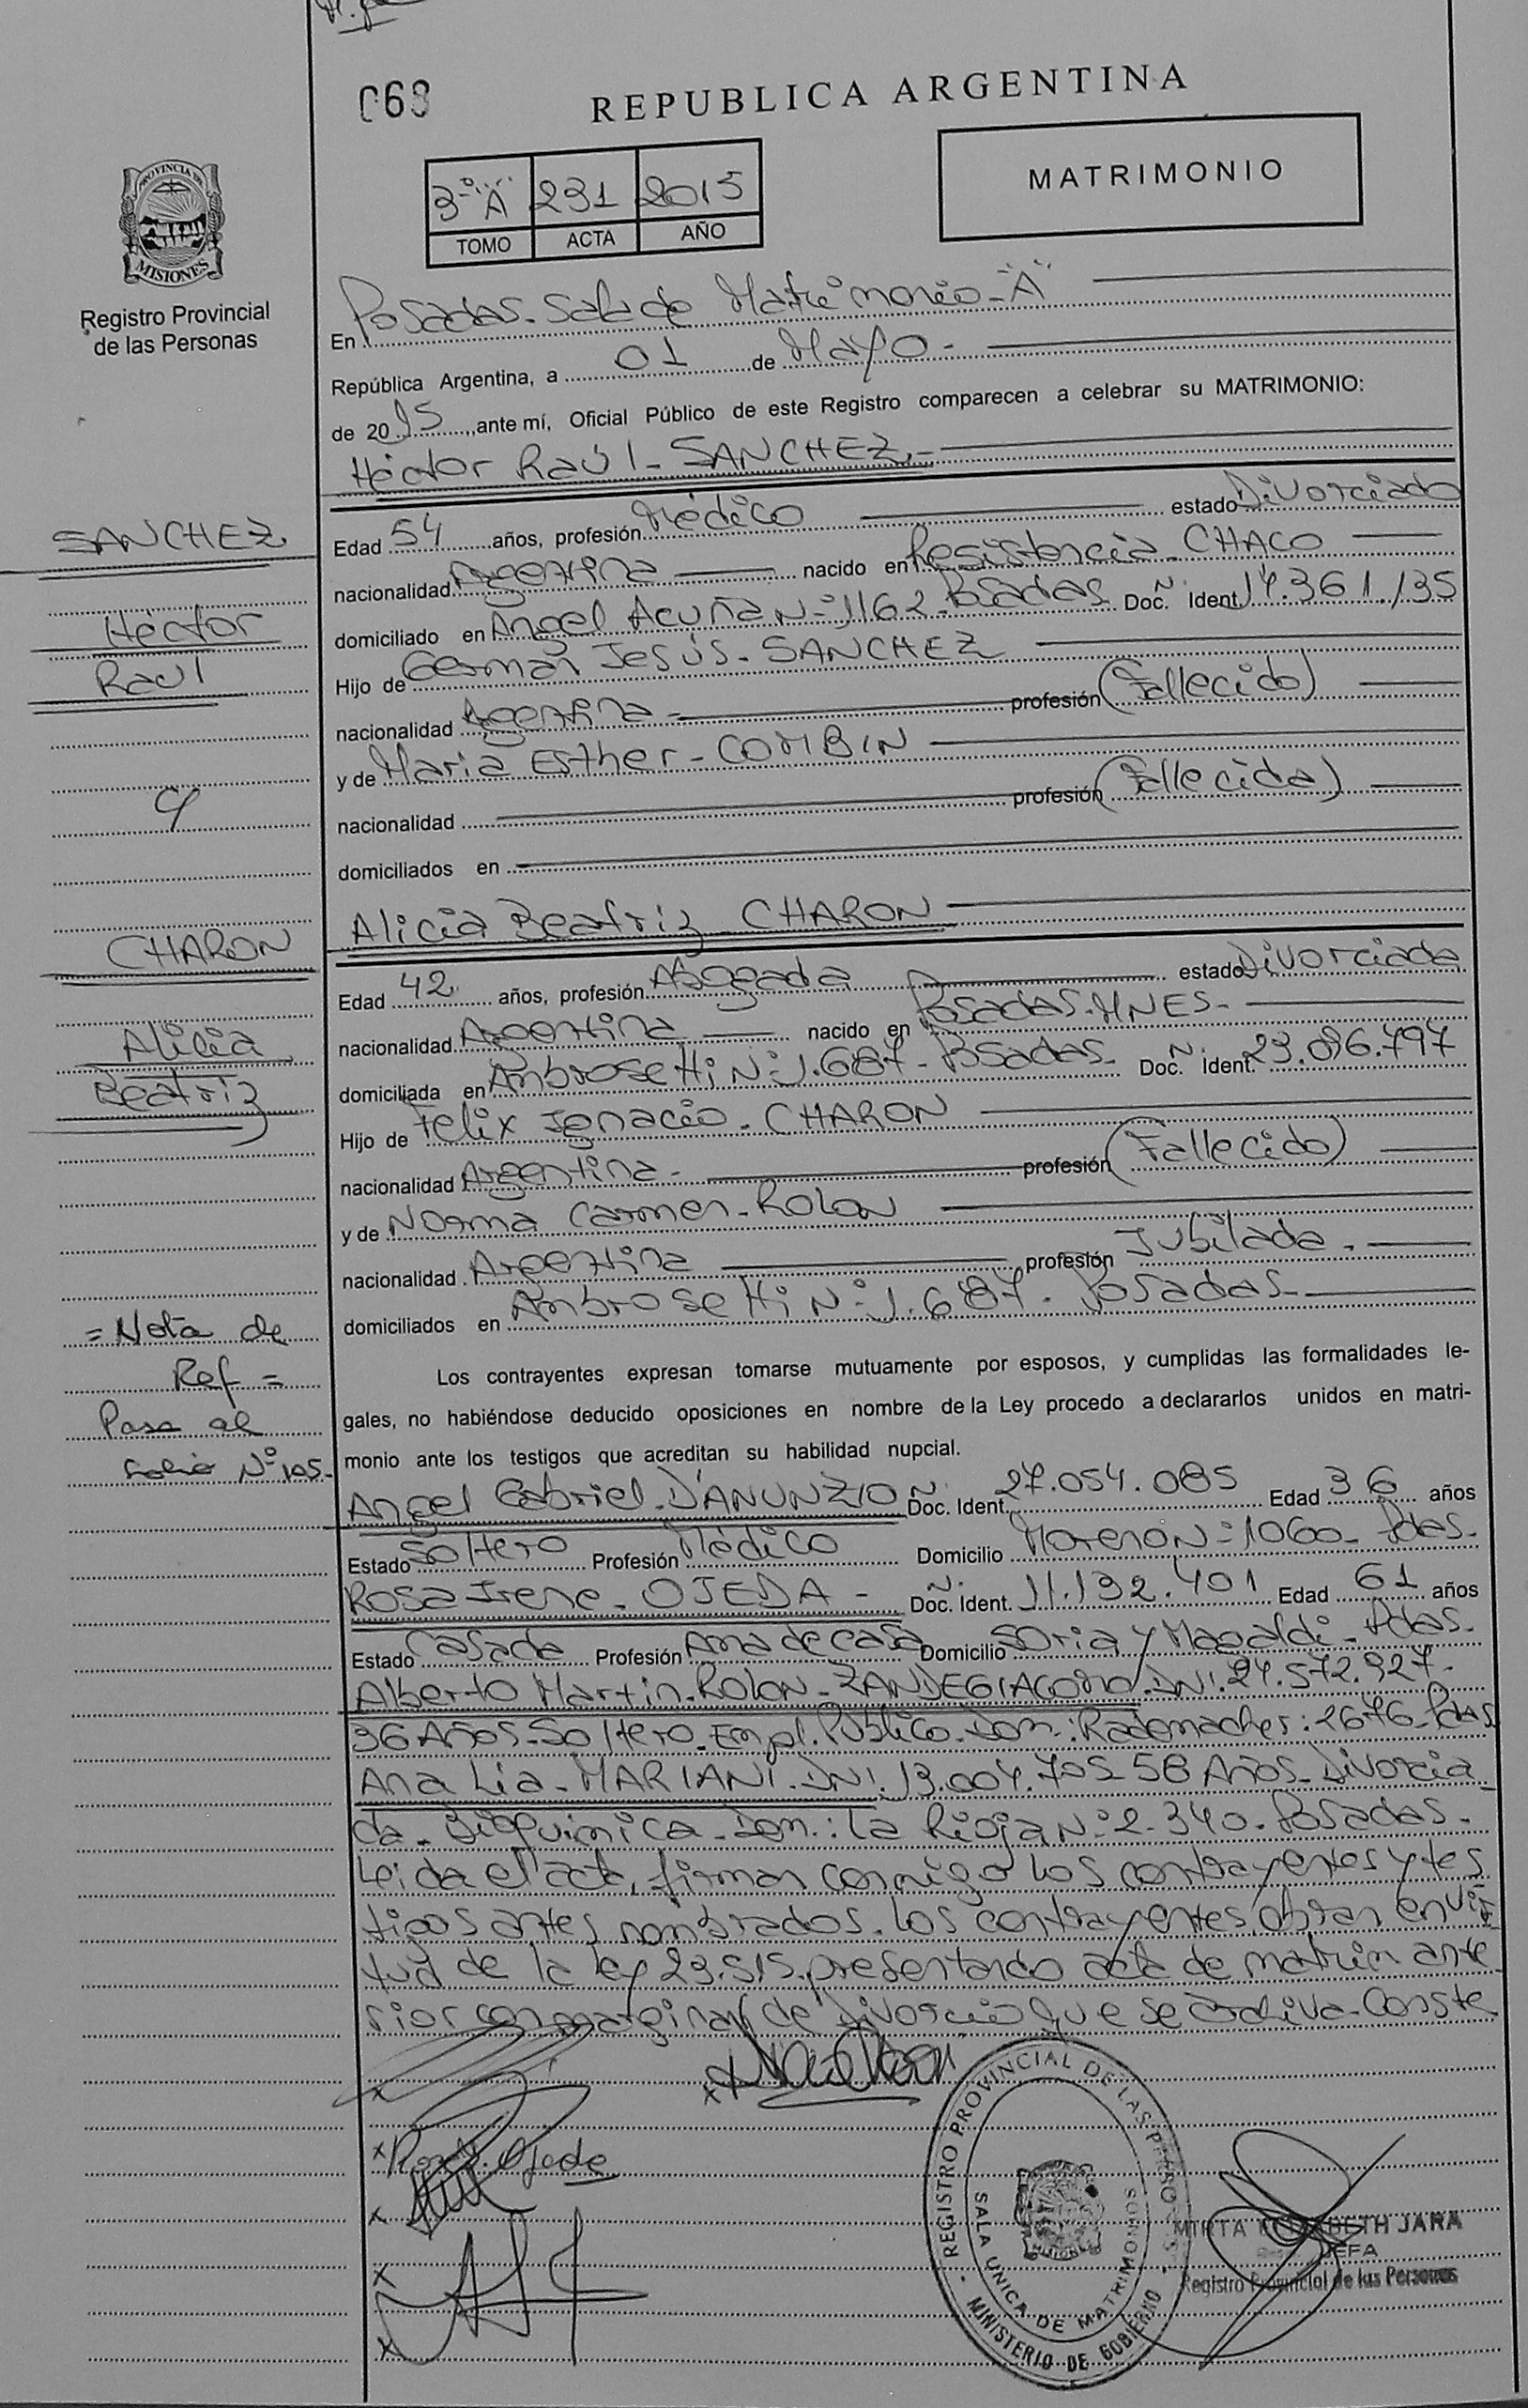 068
REPUBLICA ARGENTINA
MATRIMONIO
3º "A" 231 2015
TOMO ACTA AÑO
PROVINCIA DE
MISIONES
Registro Provincial
de las Personas
En Posadas - Sala de Matrimonio - "A"
República Argentina, a 01 de Mayo -
de 2015, ante mí, Oficial Público de este Registro comparecen a celebrar su MATRIMONIO:
Héctor Raúl - SANCHEZ -
SANCHEZ
Héctor
Raúl
y
CHARON
Alicia
Beatriz
= Nota de
Ref =
Pasa al
folio Nº 105 -
Edad 54 años, profesión Médico estado Divorciado
nacionalidad Argentina nacido en Resistencia - CHACO
domiciliado en Angel Acuña Nº 1162 - Posadas Doc. Ident. Nº 14.361.135
Hijo de Germán Jesús - SANCHEZ
nacionalidad Argentina - profesión (Fallecido)
y de Maria Esther - COMBIN
nacionalidad profesión (Fallecida)
domiciliados en
Alicia Beatriz - CHARON
Edad 42 años, profesión Abogada estado Divorciada
nacionalidad Argentina nacido en Posadas - MNES -
domiciliada en Ambrosetti Nº 1.687 - Posadas - Doc. Ident. Nº 23.096.797
Hijo de Felix Ignacio - CHARON
nacionalidad Argentina - profesión (Fallecido)
y de Norma Carmen - ROLON
nacionalidad Argentina profesión Jubilada -
domiciliados en Ambrosetti Nº 1.687 - Posadas -
Los contrayentes expresan tomarse mutuamente por esposos, y cumplidas las formalidades le-
gales, no habiéndose deducido oposiciones en nombre de la Ley procedo a declararlos unidos en matri-
monio ante los testigos que acreditan su habilidad nupcial.
Angel Gabriel - D'ANUNZIO Doc. Ident. Nº 27.054.085 Edad 36 años
Estado Soltero Profesión Médico Domicilio Moreno Nº 1060 - Pdas -
Rosa Irene - OJEDA - Doc. Ident. Nº 11.132.401 Edad 61 años
Estado Casada Profesión Ama de casa Domicilio Soria y Magaldi - Pdas -
Alberto Martin - ROLON - ZANDEGIACOMO - DNI. 24.572.927 -
36 Años - Soltero - Empl. Público - Dom.: Rademacher: 2676 - Pdas
Ana Lia - MARIANI - DNI. 13.004.705 - 58 Años - Divorcia-
da - Bioquimica - Dom.: La Rioja Nº 2.340 - Posadas -
Leida el acta, firman conmigo los contrayentes y tes
tigos antes nombrados. Los contrayentes obran en vir
tud de la ley 23.515. presentando acta de matrim ante
rior con marginal de Divorcio que se archiva - Conste
Ojeda
REGISTRO PROVINCIAL DE LAS PERSONAS
SALA UNICA DE MATRIMONIOS
MISIONES
- MINISTERIO DE GOBIERNO -
MIRTA ELIZABETH JARA
JEFA
Registro Provincial de las Personas